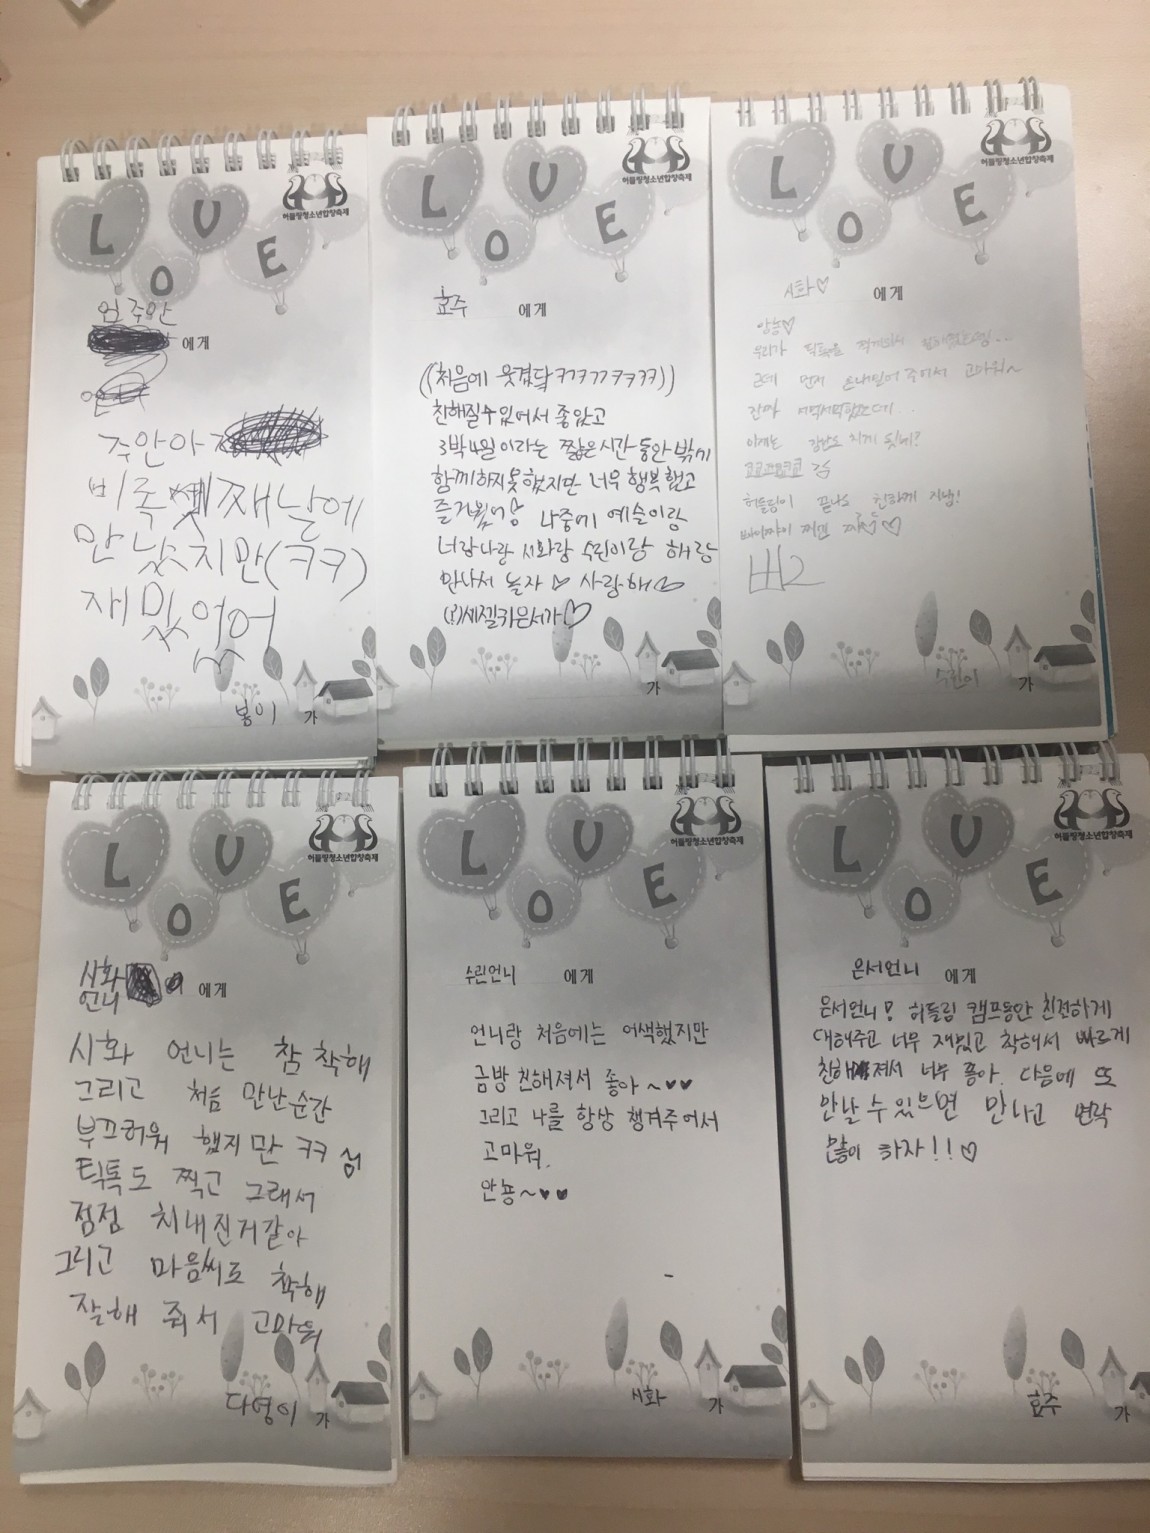 L O V E
허들링청소년합창축제
엄주안
에게
주안아
비록 째날에
만났지만(ㅋㅋ)
재밌었어
봉이 가
L O V E
허들링청소년합창축제
효주 에게
((처음에 웃겼닼ㅋㅋㅋㅋㅋㅋㅋ))
친해질수있어서 좋았고
3박4일이라는 짧은시간동안밖에
함께하지못했지만 너무 행복했고
즐거웠어 나중에 예슬이랑
너랑나랑 시화랑 수린이랑 해랑
만나서 놀자♡ 사랑해♡
세젤귀은서가♡
가
L O V E
허들링청소년합창축제
시화♡ 에게
안뇽♡
우리가 틱톡을
근데 먼저 손내밀어 주어서 고마워~
진짜
이제는 장난도 치게 됫네?
허들링이 끝나도 친하게 지냄!
수린이 가
L O V E
허들링청소년합창축제
시화
언니 에게
시화 언니는 참 착해
그리고 처음 만난순간
부끄러워 했지만 ㅋㅋ
틱톡도 찍고 그래서
점점 치내진거같아
그리고 마음씨도 착해
잘해 줘서 고마워
다영이 가
L O V E
허들링청소년합창축제
수린언니 에게
언니랑 처음에는 어색했지만
금방 친해져서 좋아~♥♥
그리고 나를 항상 챙겨주어서
고마워.
안뇽~♥♥
시화 가
L O V E
허들링청소년합창축제
은서언니 에게
은서언니! 허들링 캠프동안 친절하게
대해주고 너무 재밌고 착해서 빠르게
친해져서 너무 좋아. 다음에 또
만날 수 있으면 만나고 연락
많이 하자!!♡
효주 가